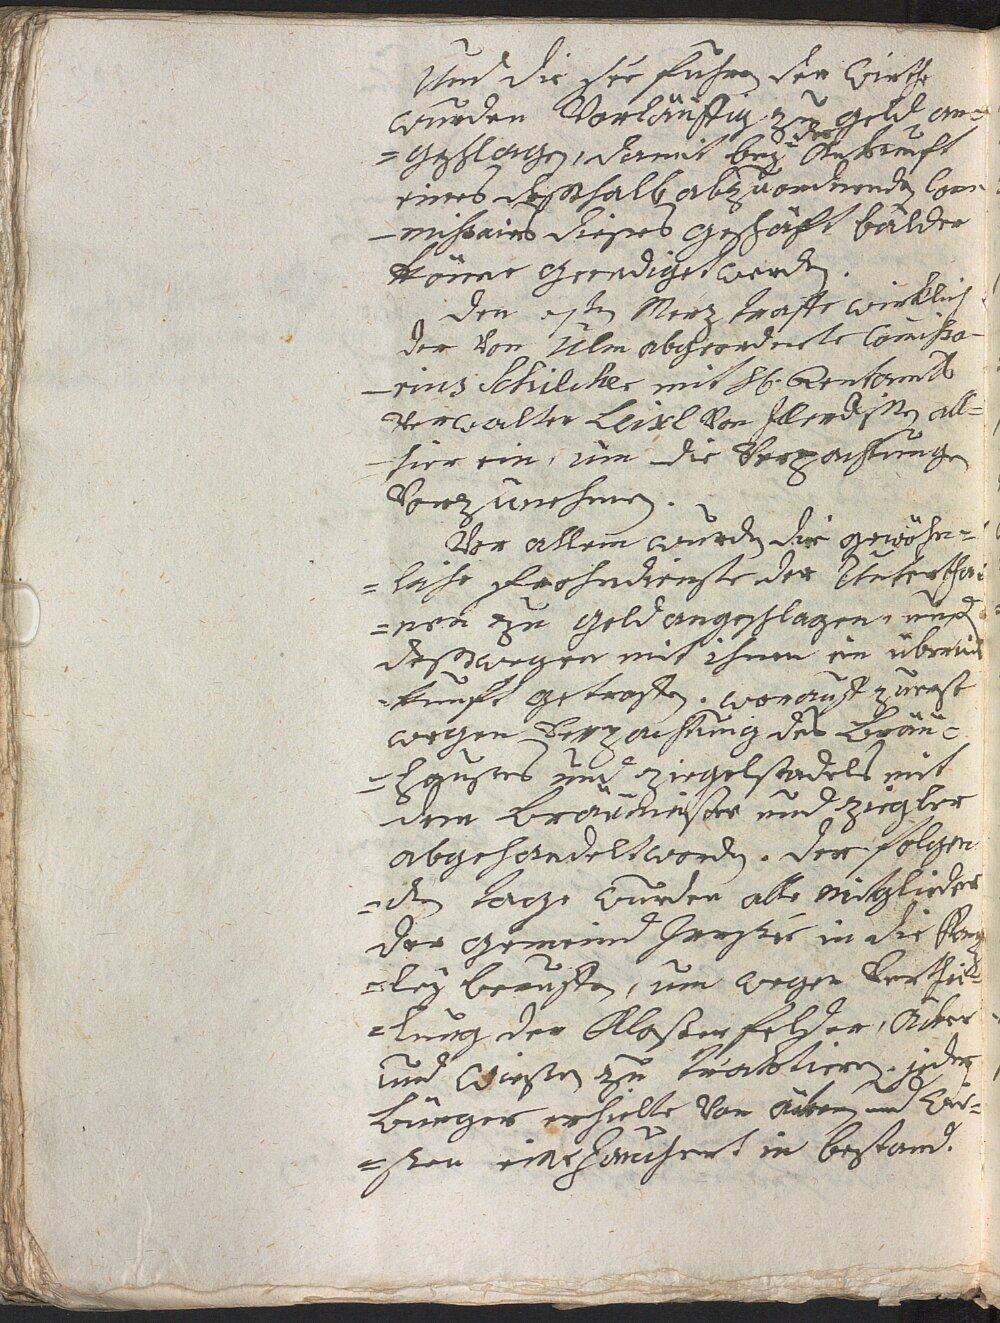 Und die see fuhren der Wirthe
wurden Vorläuffig zu Geld an=
=geschlagen, damit bey der Ankunft
eines desshalb abzuordnenden Com
-missairs dieses Geschäft bälder
könne geendiget werden.
Den Merz traffe wirklich
der Von Ulm abgeordnete Commissa-
-rius Schilcher mit H. Rentamts
Verwalter Leixl Von Illerdissen all=
-hier ein, um die Verpachtungen
Vorzunehmen.
Vor allem wurden die gewöhn=
=liche Frohndienste der Untertha
=nen zu Geld angeschlagen, und
desswegen mit ihnen ein überein
-kunft getroffen. worauf zuerst
wegen Verpachtung des Bräu=
-hauses und Ziegelstadels mit
dem Bräumeister und Ziegler
abgehandelt worden. Den folgen
=den tage wurden alle Mitglieder
der Gemeind in die Kanz
=ley beruffen, um wegen Verthei
=lung der Klosterfelder, Äker
und Wiesen zu tracktieren. jeder
Bürger erhielte Von äkern und Wie=
=sen Jauchert in bestand.